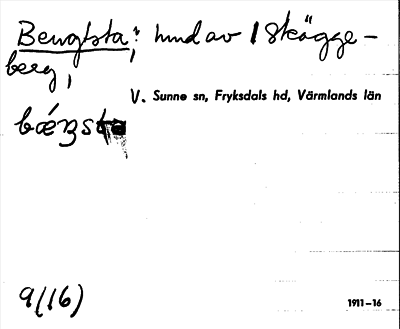 Bengtsta; hmd av 1 Skägge-
berg,
V. Sunne sn, Fryksdals hd, Värmlands län
9(16)
1911–16